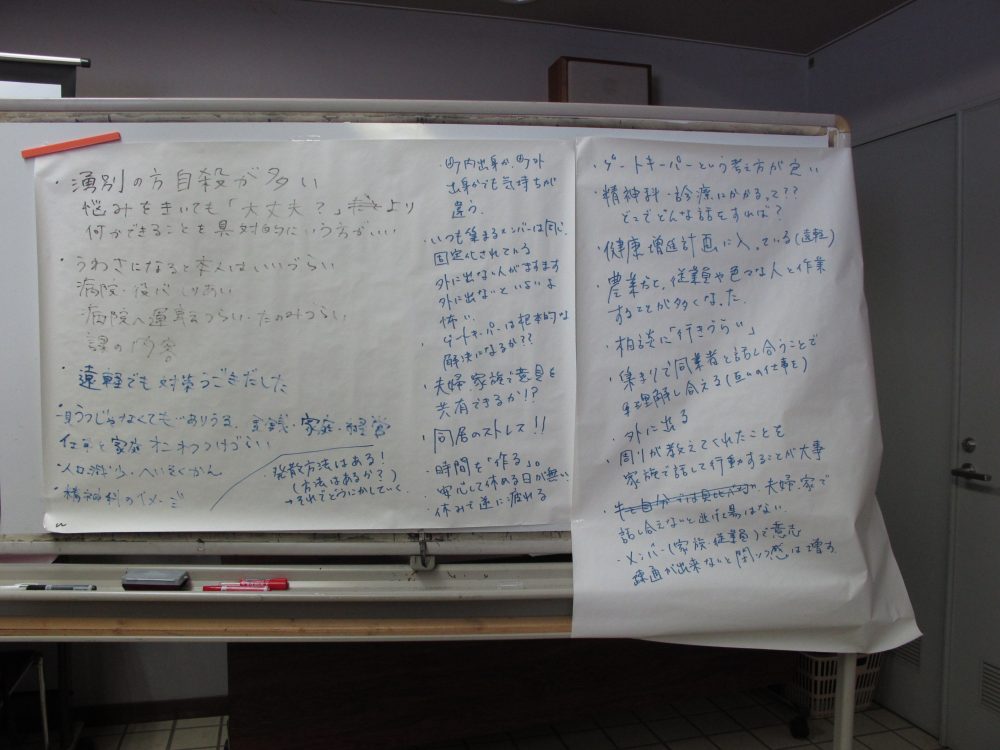 ・湧別の方自殺が多い
悩みをきいても「大丈夫?」より
何ができることを具対的にいう方がいい
・うわさになると本人はいいづらい
病院・役バ しりあい
病院へ運転つらい・たのみづらい
課の内容
・遠軽でも対策うごきだした
・うつじゃなくてもありうる。金銭・家庭・経営
仕事と家庭 オンオフつけづらい
・人口減少・へいそくかん
・精神科のイメージ
発散方法はある!
(方法はあるか?)
→それでどうにかしていく。
・町内出身か、町外
出身かでも気持ちが
違う。
・いつも集まるメンバーは同じ。
固定化されている
外に出ない人がますます
外に出ないといない
怖い。
・ゲートキーパーは根本的な
解決になるか??
・夫婦、家族で意見を
共有できるか!?
・同居のストレス!!
・時間を「作る」。
・安心して休める日が無い
・休みで逆に疲れる
・ゲートキーパーという考え方が良い
・精神科・診療にかかるって??
どこでどんな話をすれば?
・健康増進計画に入っている(遠軽)
・農業だと、従業員や色々な人と作業
することが多くなった。
・相談に「行きづらい」
・集まりで同業者と話し合うことで
理解し合える(互いの仕事を)
・外に出る
・周りが教えてくれたことを
家族で話して行動することが大事
夫婦、家で
話し合えないと逃げ場はない。
・メンバー(家族・従業員)で意志
疎通が出来ないと閉ソク感は増す。